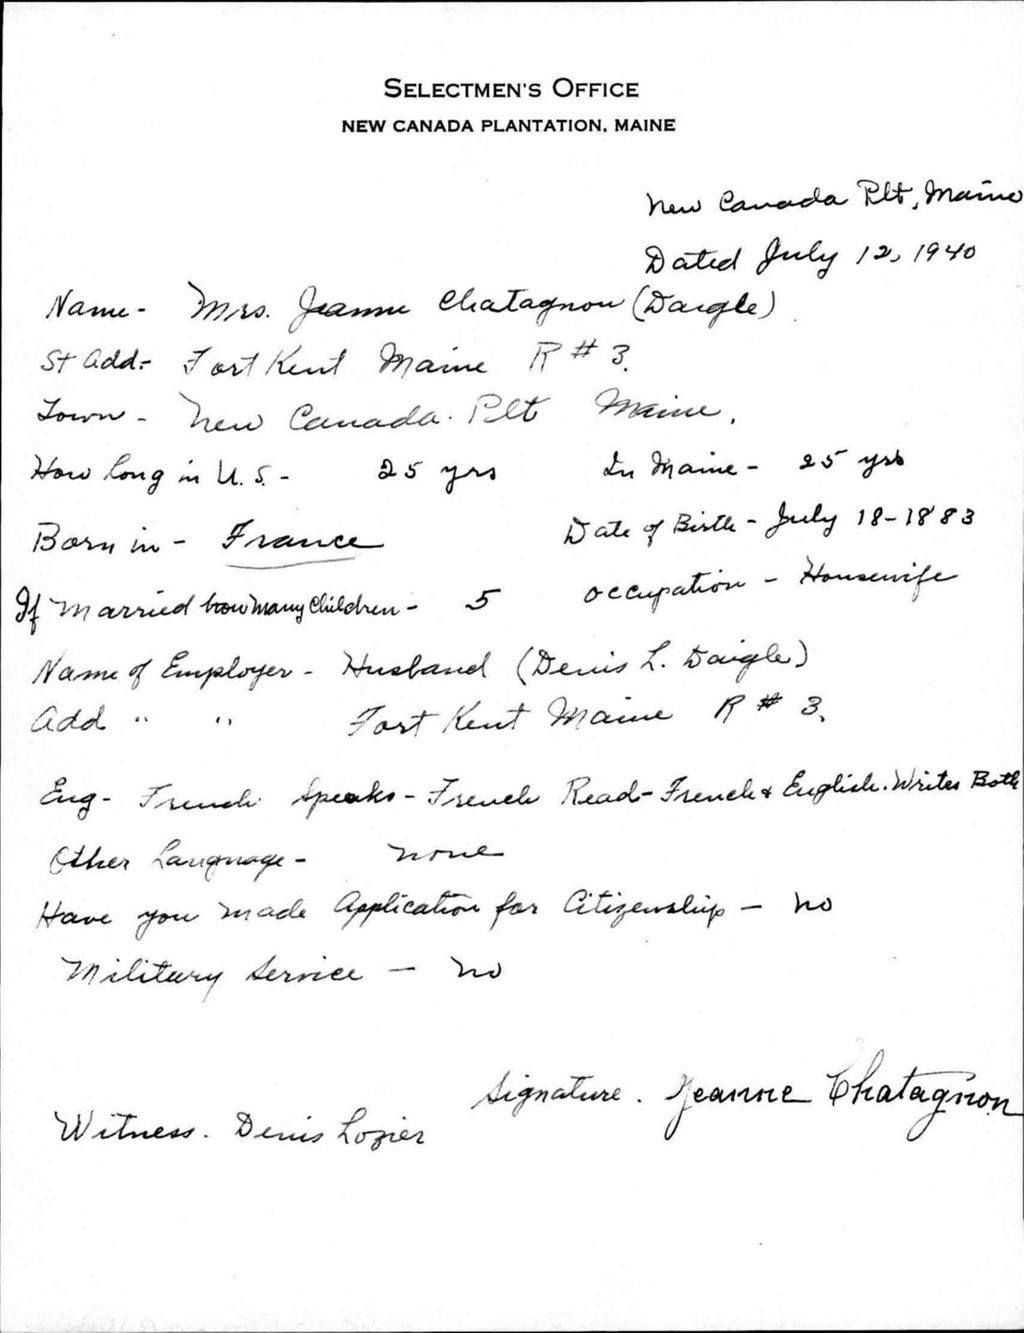 SELECTMEN'S OFFICE
NEW CANADA PLANTATION, MAINE
New Canada Plt, Maine
Dated July 12, 1940
Name - Mrs. Jeanne Chatagnon (Daigle)
St Add:- Fort Kent Maine R # 3.
Town - New Canada. Plt Maine.
How long in U.S. - 25 yrs In Maine - 25 yrs
Born in - France Date of Birth - July 18-1883
If Married how many Children - 5 occupation - Housewife
Name of Employer - Husband (Denis L. Daigle)
Add " " Fort Kent Maine R # 3.
Eng - French Speaks - French Read - French & English. Writes Both
Other Language - none
Have you made Application for Citizenship - no
Military Service - no
Signature. Jeanne Chatagnon
Witness. Denis Lozier